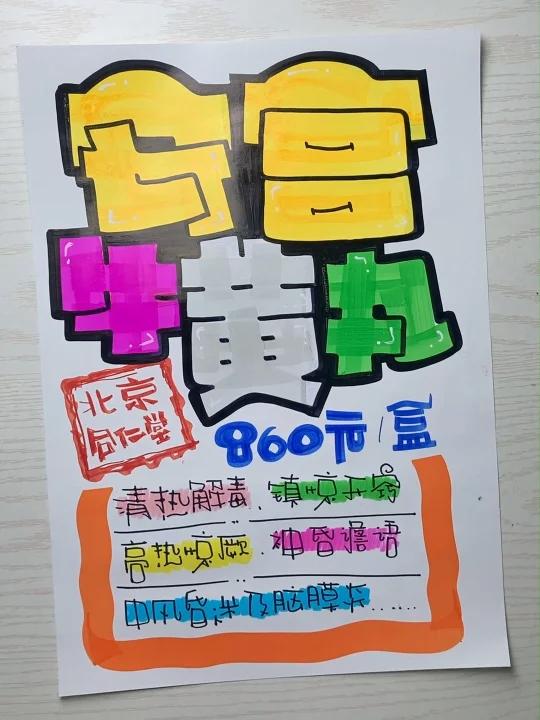 安宫
牛黄丸
北京
同仁堂
860元/盒
清热解毒、镇惊开窍
高热惊厥、神昏谵语
中风昏迷及脑膜炎......